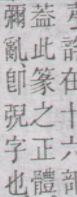 許在十六部
葢此篆之正體
彌亂卽𧠟字也